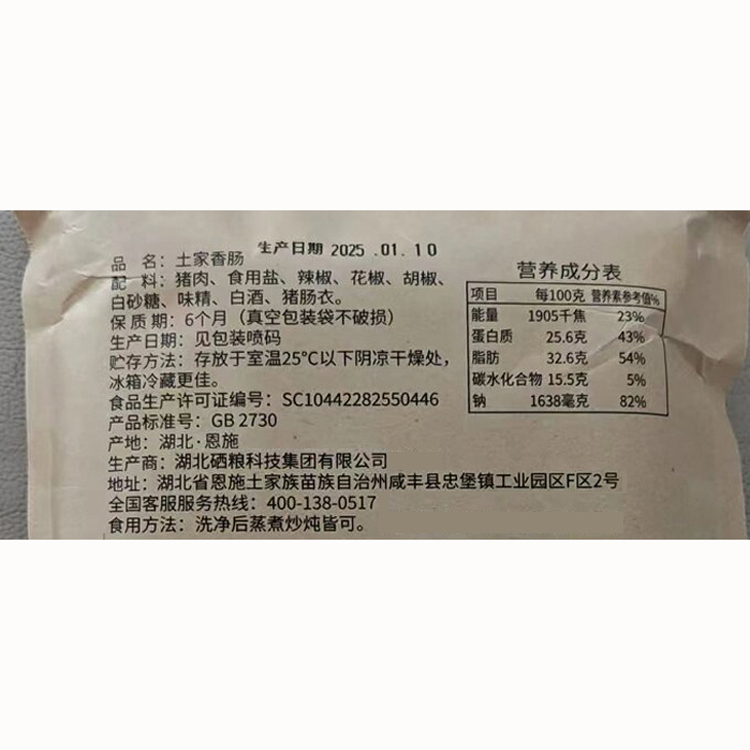 生产日期 2025 .01. 10
品 名：土家香肠
配 料：猪肉、食用盐、辣椒、花椒、胡椒、
白砂糖、味精、白酒、猪肠衣。
保 质 期：6个月（真空包装袋不破损）
生产日期：见包装喷码
贮存方法：存放于室温25℃以下阴凉干燥处，
冰箱冷藏更佳。
食品生产许可证编号：SC10442282550446
产品标准号：GB 2730
产地：湖北·恩施
生产商：湖北硒粮科技集团有限公司
地址：湖北省恩施土家族苗族自治州咸丰县忠堡镇工业园区F区2号
全国客服服务热线：400-138-0517
食用方法：洗净后蒸煮炒炖皆可。
营养成分表
项目 每100克 营养素参考值%
能量 1905千焦 23%
蛋白质 25.6克 43%
脂肪 32.6克 54%
碳水化合物 15.5克 5%
钠 1638毫克 82%